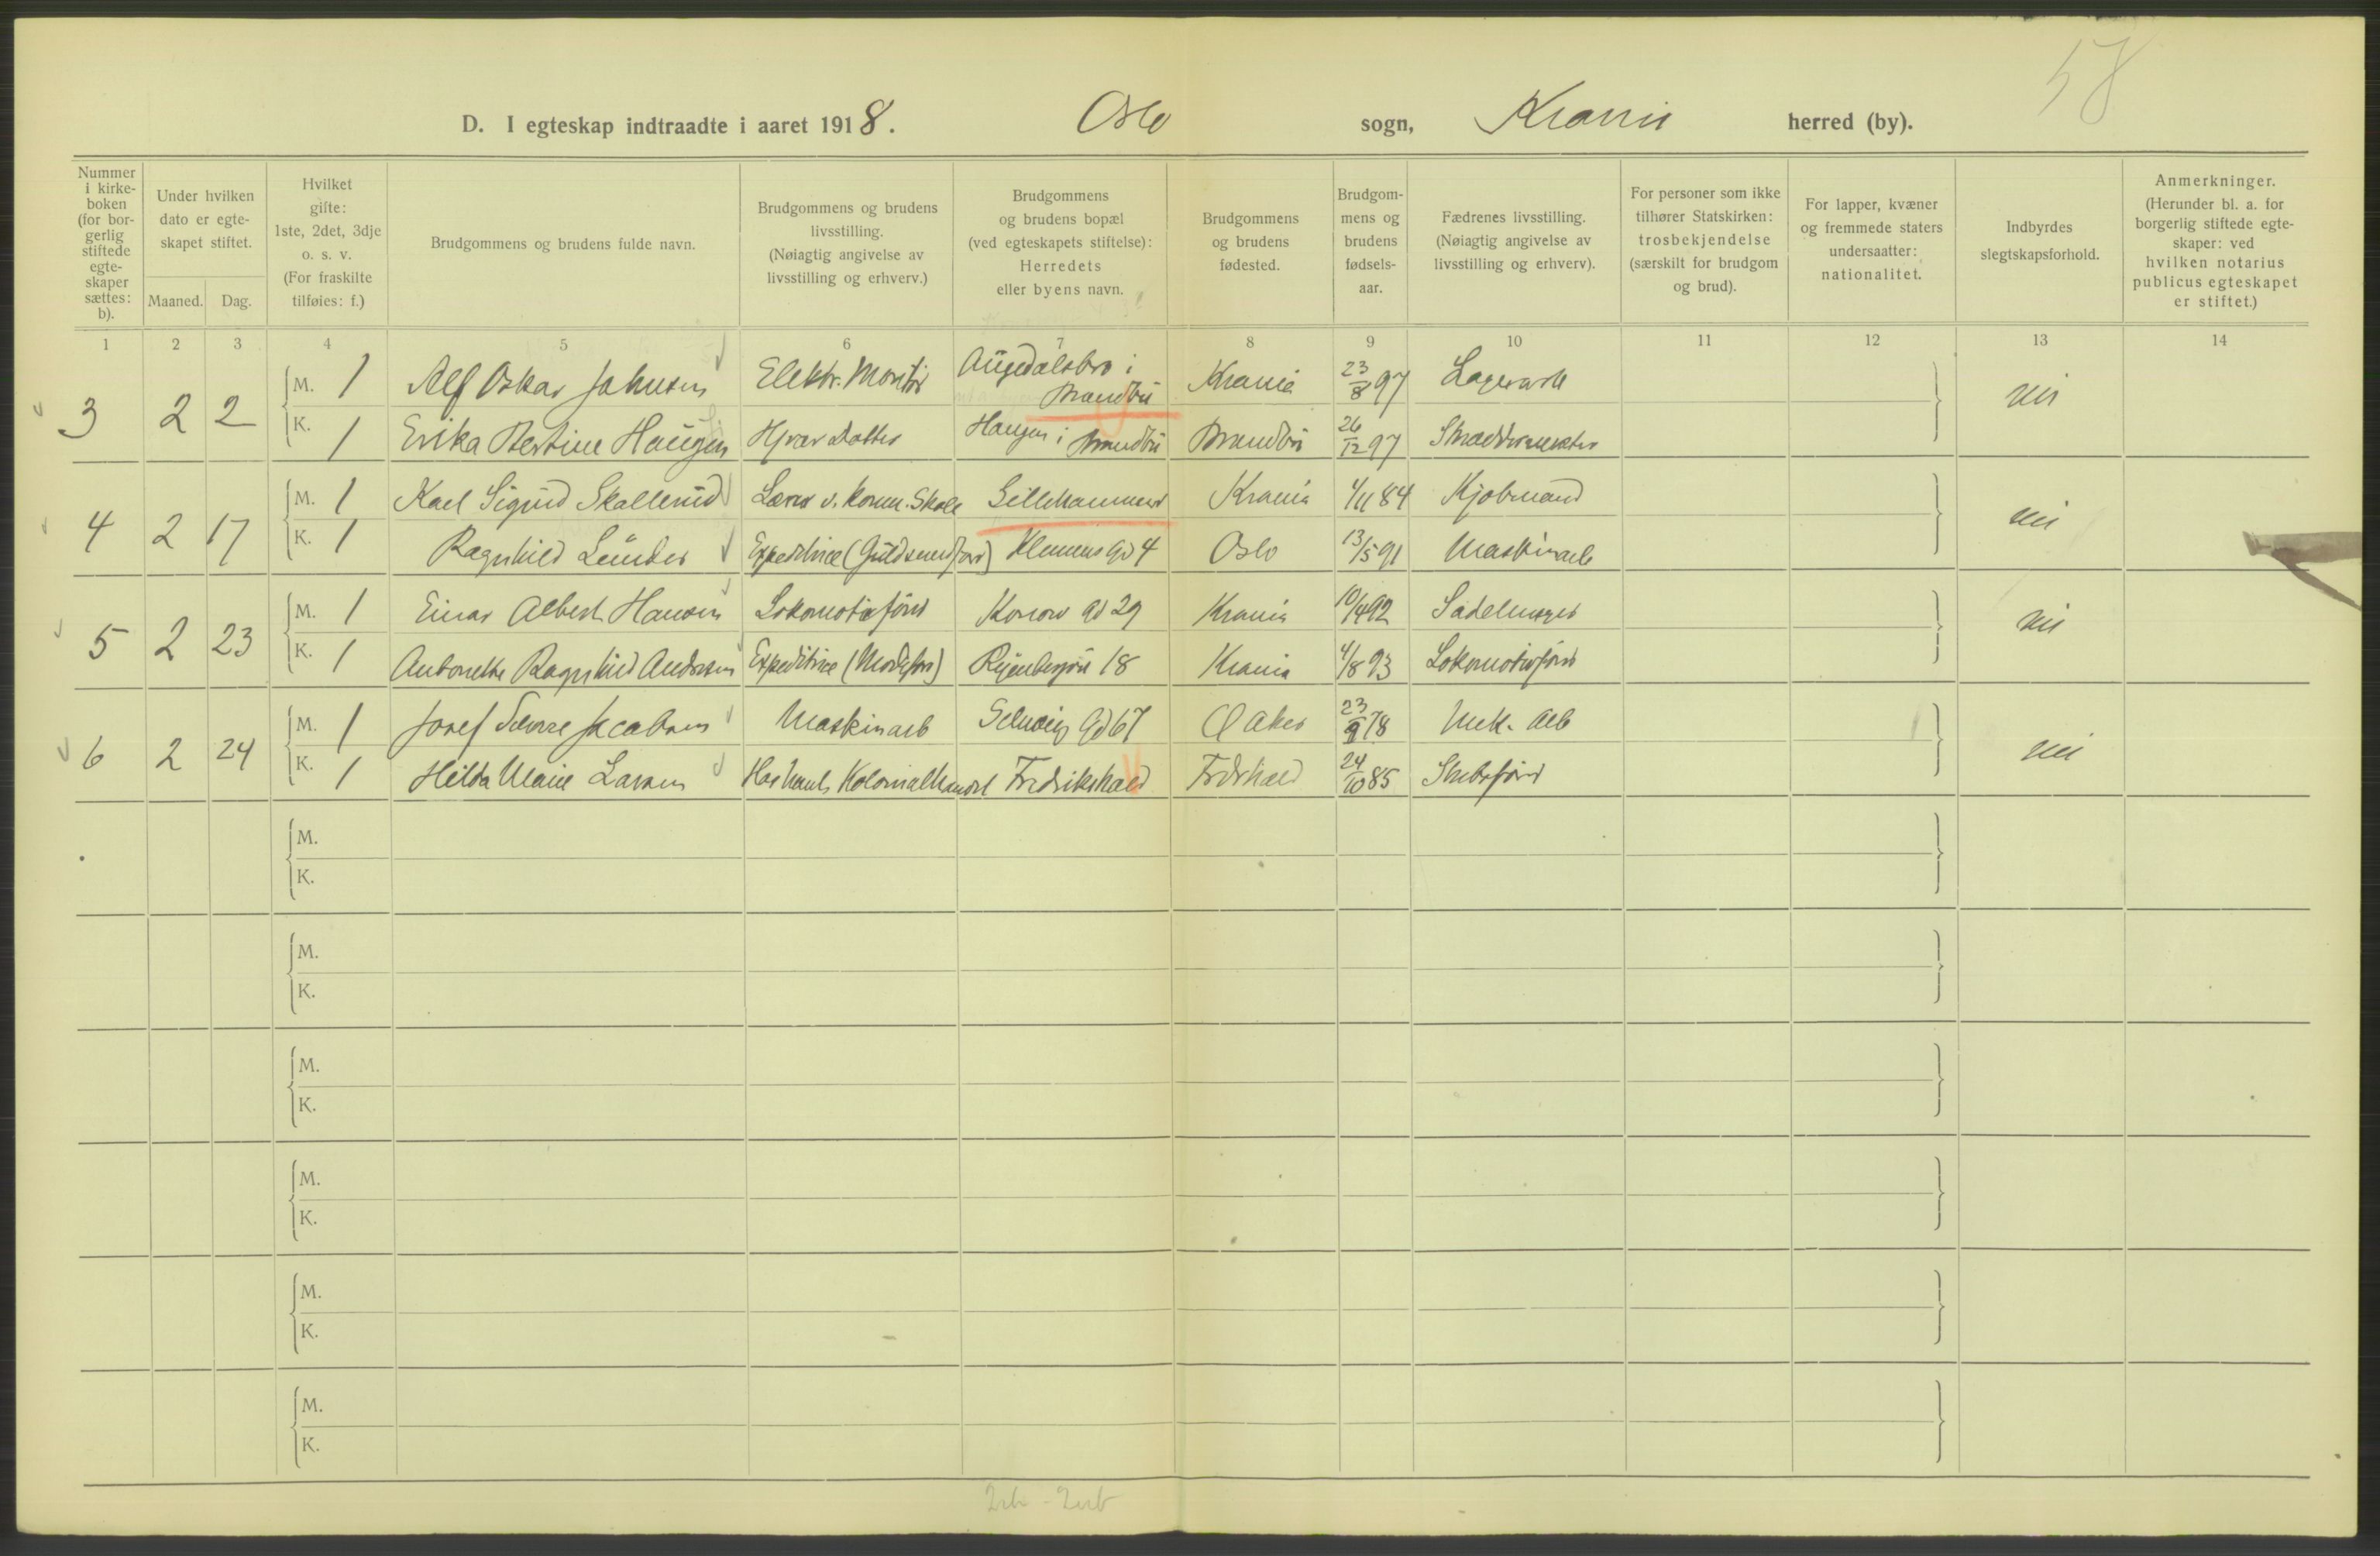 58
D. I egteskap indtraadte i aaret 1918. Oslo sogn, Krania herred (by).
Nummer i kirke-boken (for bor-gerlig stiftede egte-skaper sættes: b).
Under hvilken dato er egte-skapet stiftet.
Maaned. Dag.
Hvilket gifte: 1ste, 2det, 3dje o. s. v. (For fraskilte tilføies: f.)
Brudgommens og brudens fulde navn.
Brudgommens og brudens livsstilling. (Nøiagtig angivelse av livsstilling og erhverv.)
Brudgommens og brudens bopæl (ved egteskapets stiftelse): Herredets eller byens navn.
Brudgommens og brudens fødested.
Brudgom-mens og brudens fødsels-aar.
Fædrenes livsstilling. (Nøiagtig angivelse av livsstilling og erhverv).
For personer som ikke tilhører Statskirken: trosbekjendelse (særskilt for brudgom og brud).
For lapper, kvæner og fremmede staters undersaatter: nationalitet.
Indbyrdes slegtskapsforhold.
Anmerkninger. (Herunder bl. a. for borgerlig stiftede egte-skaper: ved hvilken notarius publicus egteskapet er stiftet.)
1 2 3 4 5 6 7 8 9 10 11 12 13 14
3 2 2 M. 1 Alf Oskar Johnsen Elektr. Montör Augedalsbro i Brandbu Krania 23/8 97 Lagerarb nei
K. 1 Erika Bertine Haugen Hjvær Datter Haugen i Brandbu Brandbu 26/12 97 Skræddermester
4 2 17 M. 1 Karl Sigurd Skallerud Lærer v. komm. Skole Lillehammer Krania 4/11 84 Kjøbmand nei
K. 1 Ragnhild Lunder Expeditrice (Guldsmedforr) Klemens Gd 4 Oslo 13/5 91 Maskinarb
5 2 23 M. 1 Einar Albert Hansen Lokomotivförer Konow Gd 29 Krania 10/4 92 Sadelmager nei
K. 1 Antonette Ragnhild Andersen Expeditrice (Modeforr) Ryenbergvei 18 Krania 4/8 93 Lokomotivförer
6 2 24 M. 1 Josef Sverre Jacobsen Maskinarb Schweig Gd 67 Ø Aker 23/9 78 Mek. Arb nei
K. 1 Hilda Marie Larsen Har havt Kolonialhandel Fredrikshald Frdrhald 24/10 85 Skibsförer
M.
K.
M.
K.
M.
K.
M.
K.
M.
K.
M.
K.